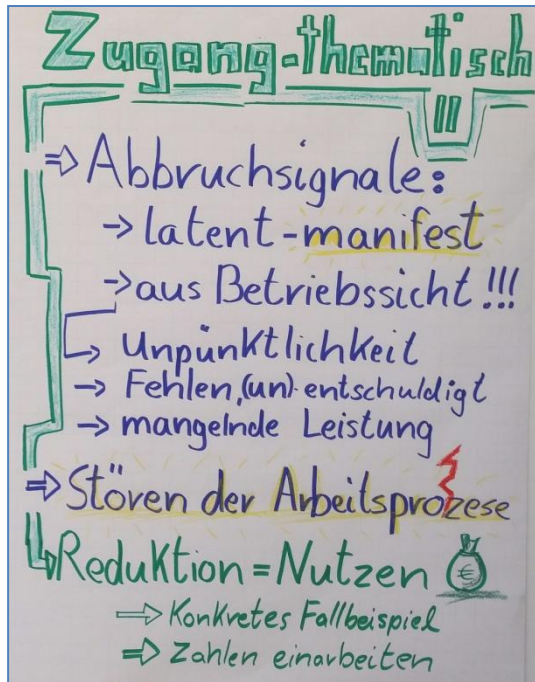 Zugang-thematisch
II
⇒ Abbruchsignale:
→ latent-manifest
→ aus Betriebssicht!!!
→ Unpünktlichkeit
→ Fehlen, (un)-entschuldigt
→ mangelnde Leistung
⇒ Stören der Arbeitsprozese
↳ Reduktion = Nutzen €
⇒ Konkretes Fallbeispiel
⇒ Zahlen einarbeiten